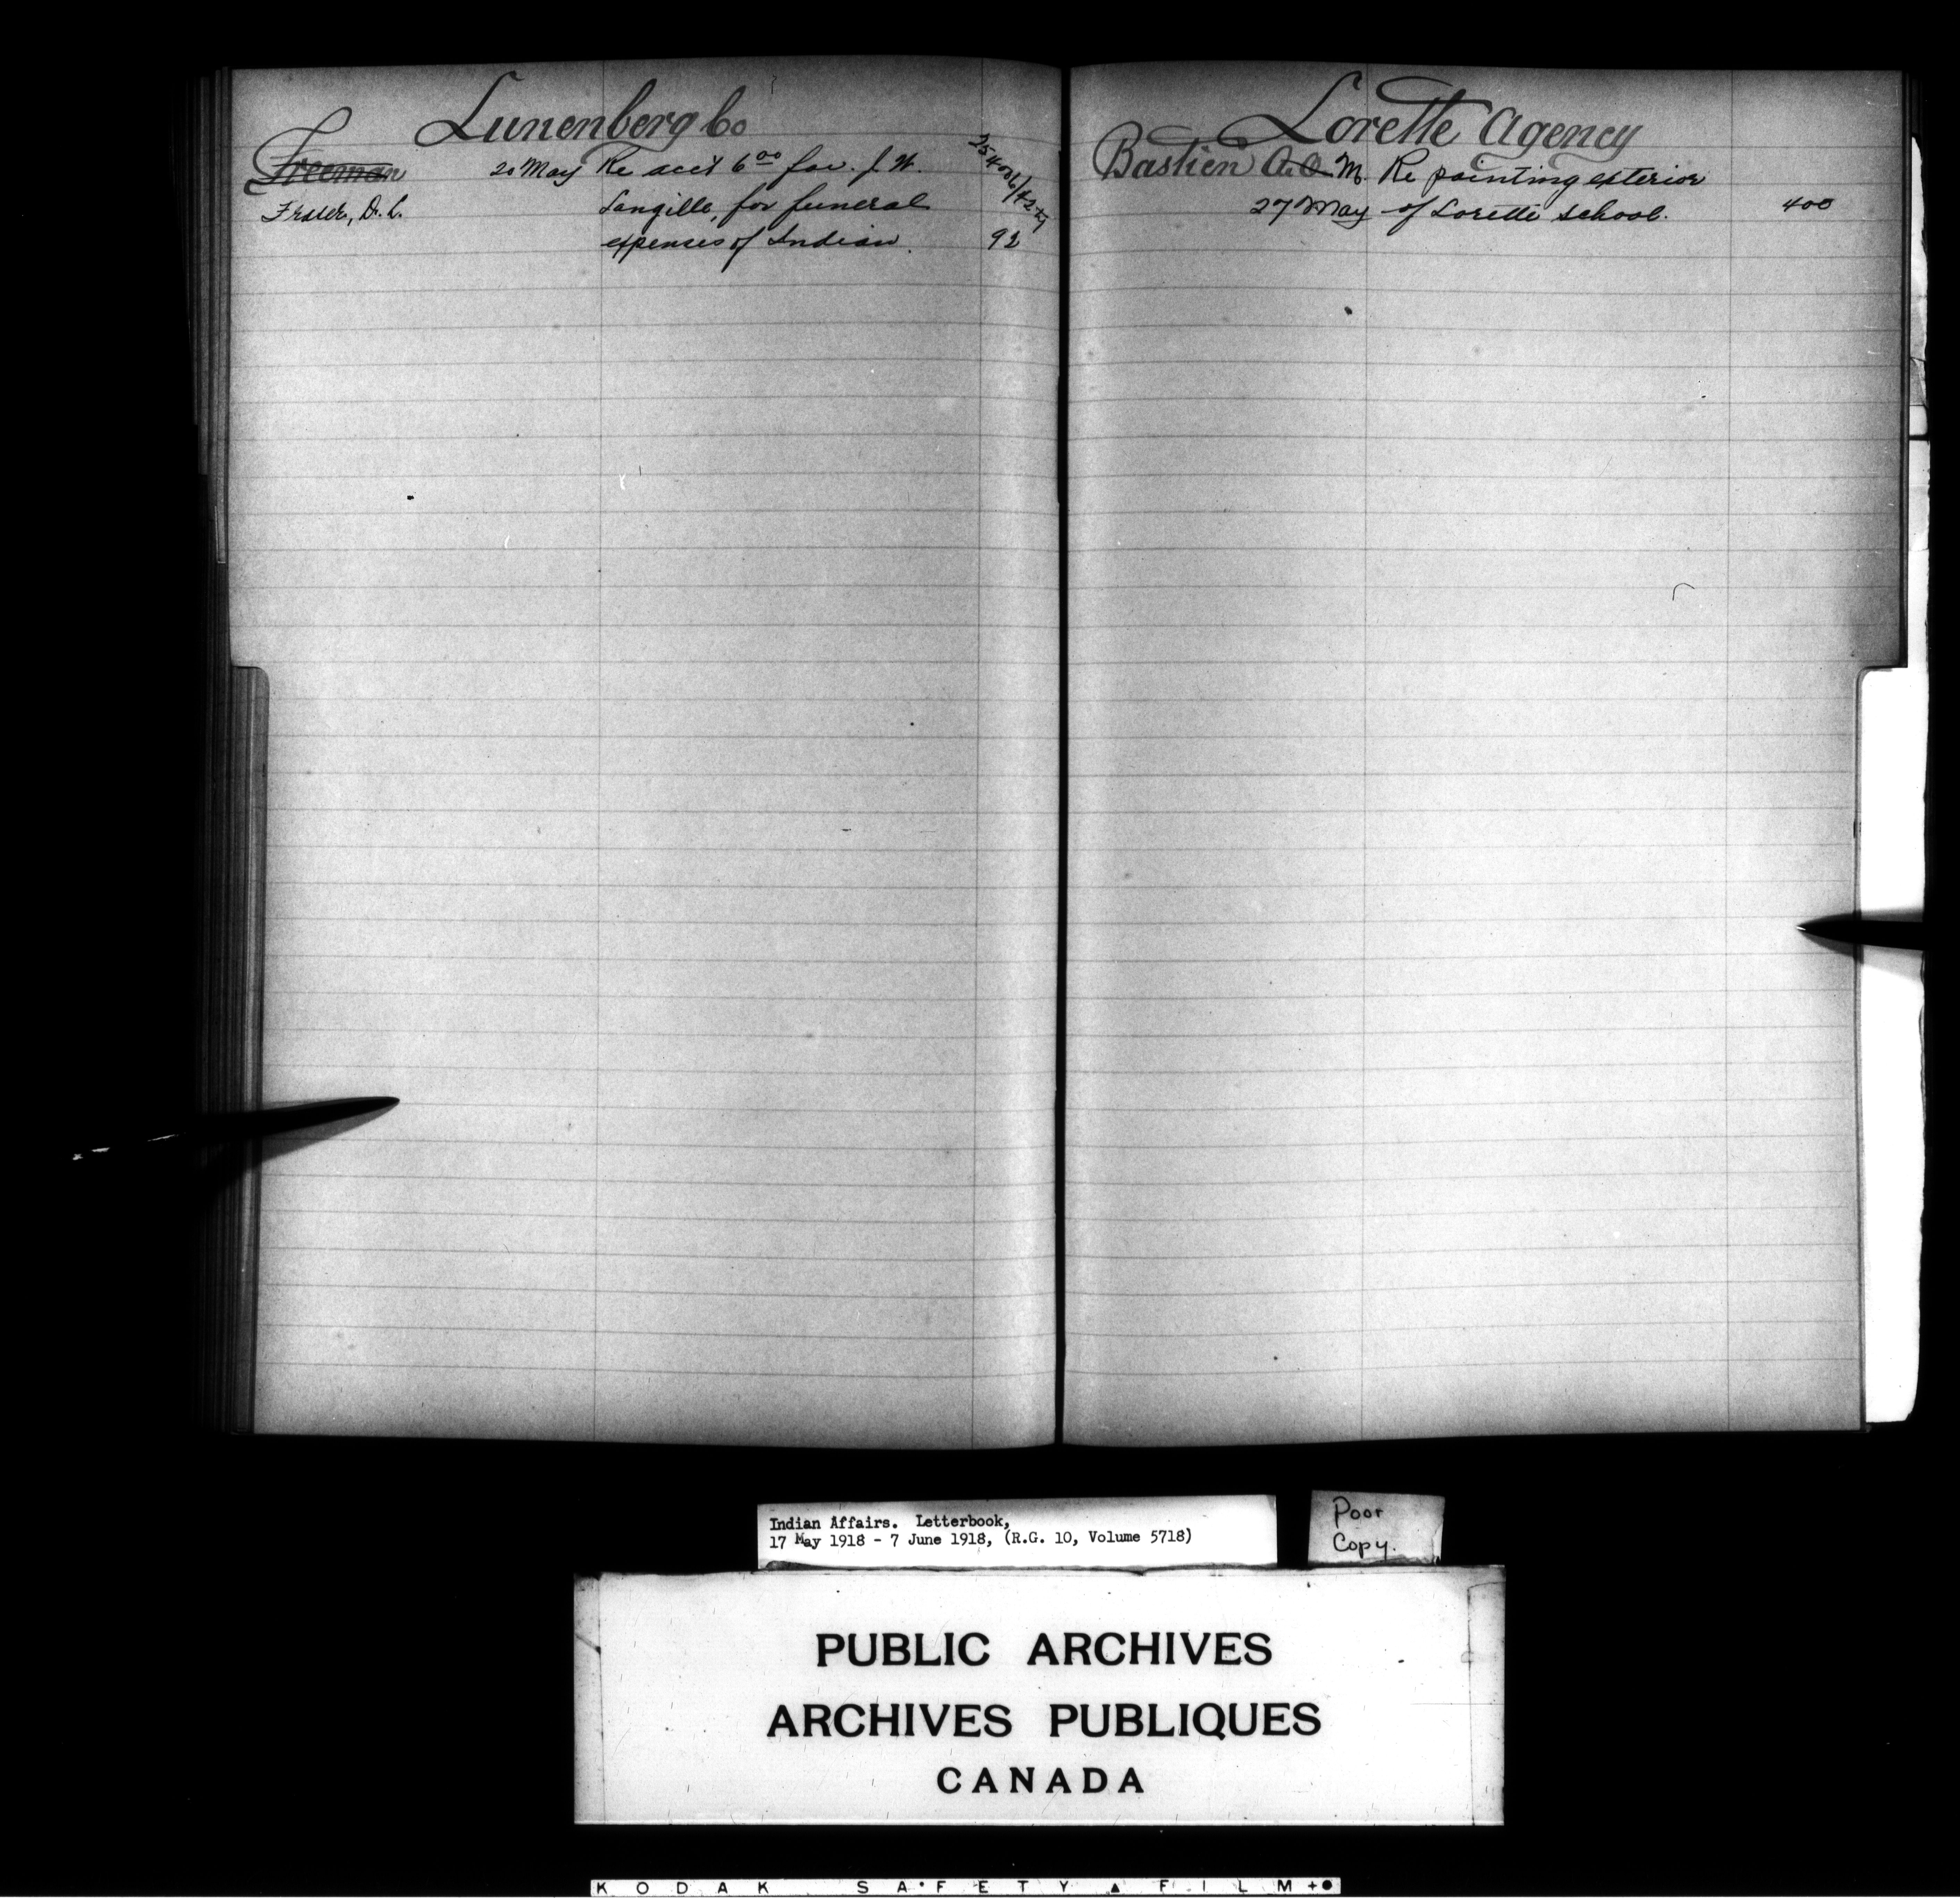 Lunenberg Co
Freeman
20 May Re acct 6 00 fav. J. W.
Fraser, D. L.
Langille, for funeral
expenses of Indian. 92
Lorette Agency
Bastien A. O. M. Re painting exterior
27 May of Lorette school. 400
Indian Affairs. Letterbook,
17 May 1918 - 7 June 1918, (R.G. 10, Volume 5718)
Poor
Copy.
PUBLIC ARCHIVES
ARCHIVES PUBLIQUES
CANADA
KODAK SAFETY FILM